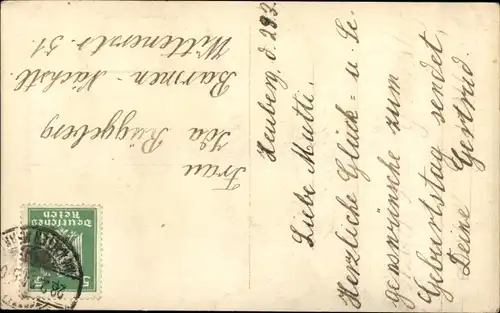 Heuberg, d. 28.3.
Liebe Mutti,
Herzliche Glück- u. Se-
genswünsche zum
Geburtstag sendet
Deine Gertrud.
Frau
Ida Rüggeberg
Barmen-Nächstb.
Wittenerstr. 51.
Deutsches
Reich
5 5